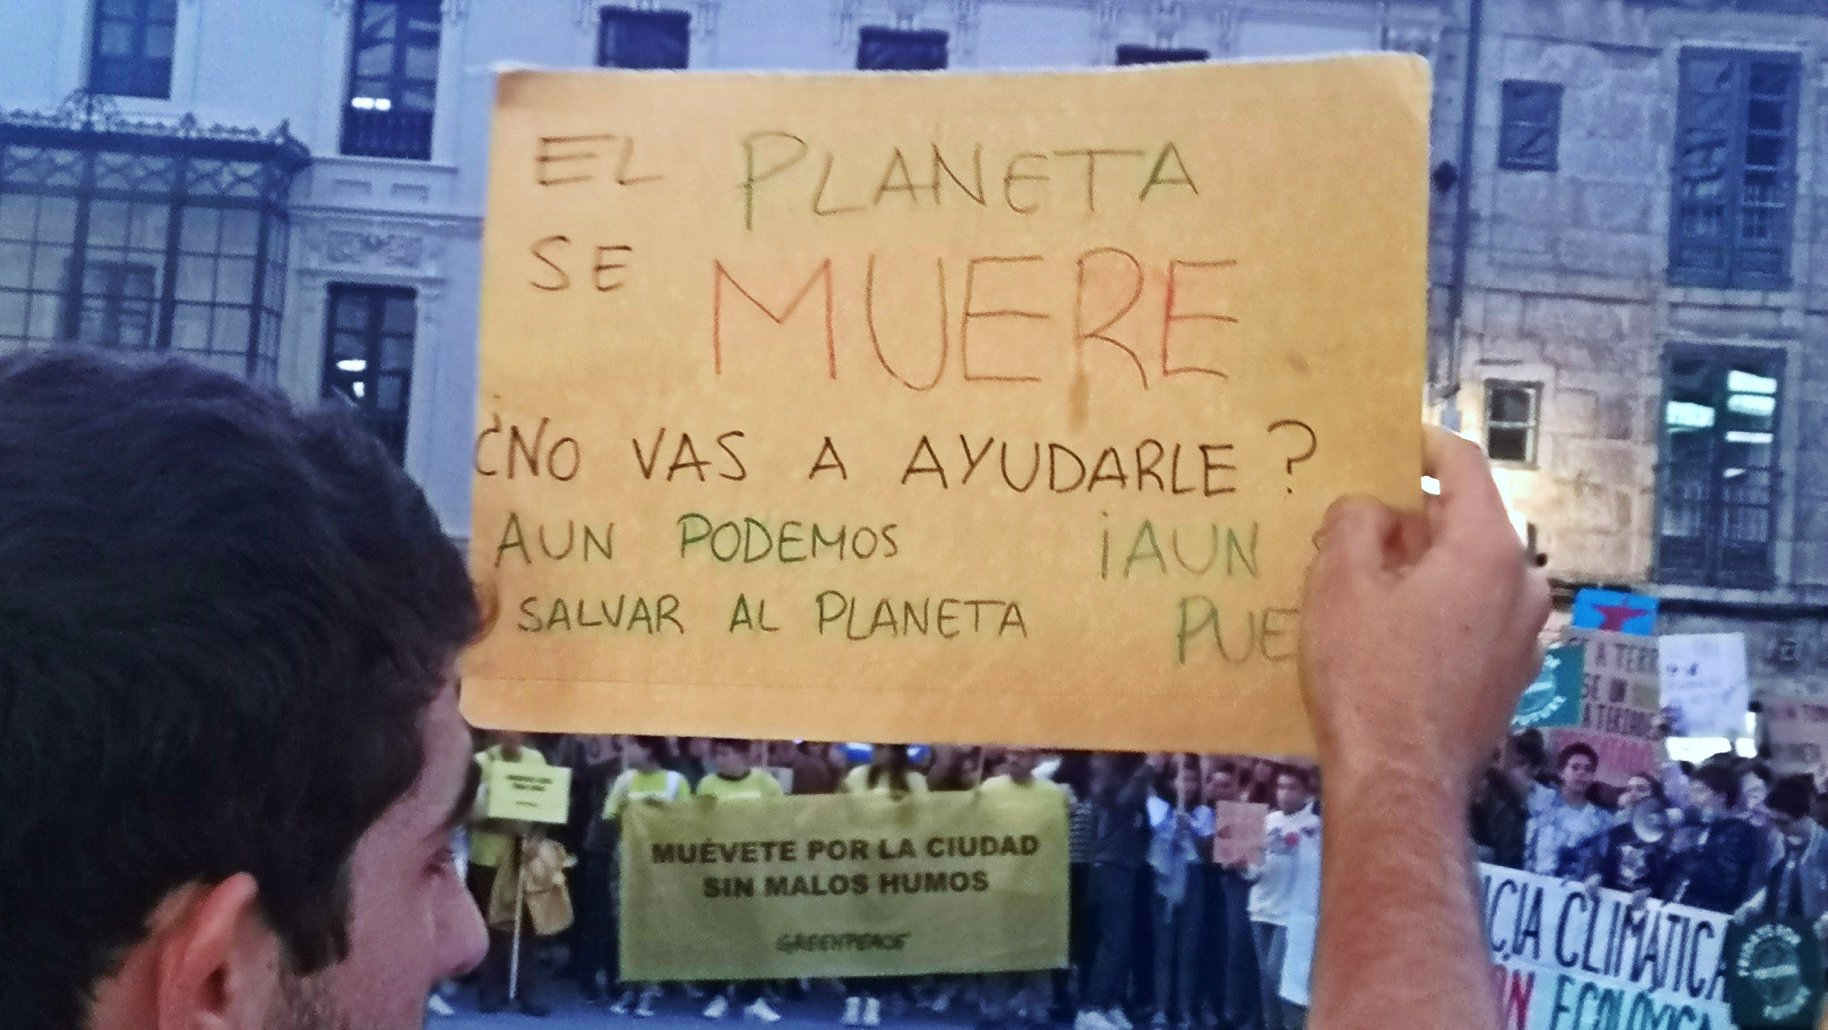 EL PLANETA
SE MUERE
¿NO VAS A AYUDARLE?
AUN PODEMOS
SALVAR AL PLANETA
¡AUN
PUE
MUÉVETE POR LA CIUDAD
SIN MALOS HUMOS
GREENPEACE
A TERR
SE UN
ATERIDO
CIA CLIMÁTICA
ÓN ECOLÓXICA